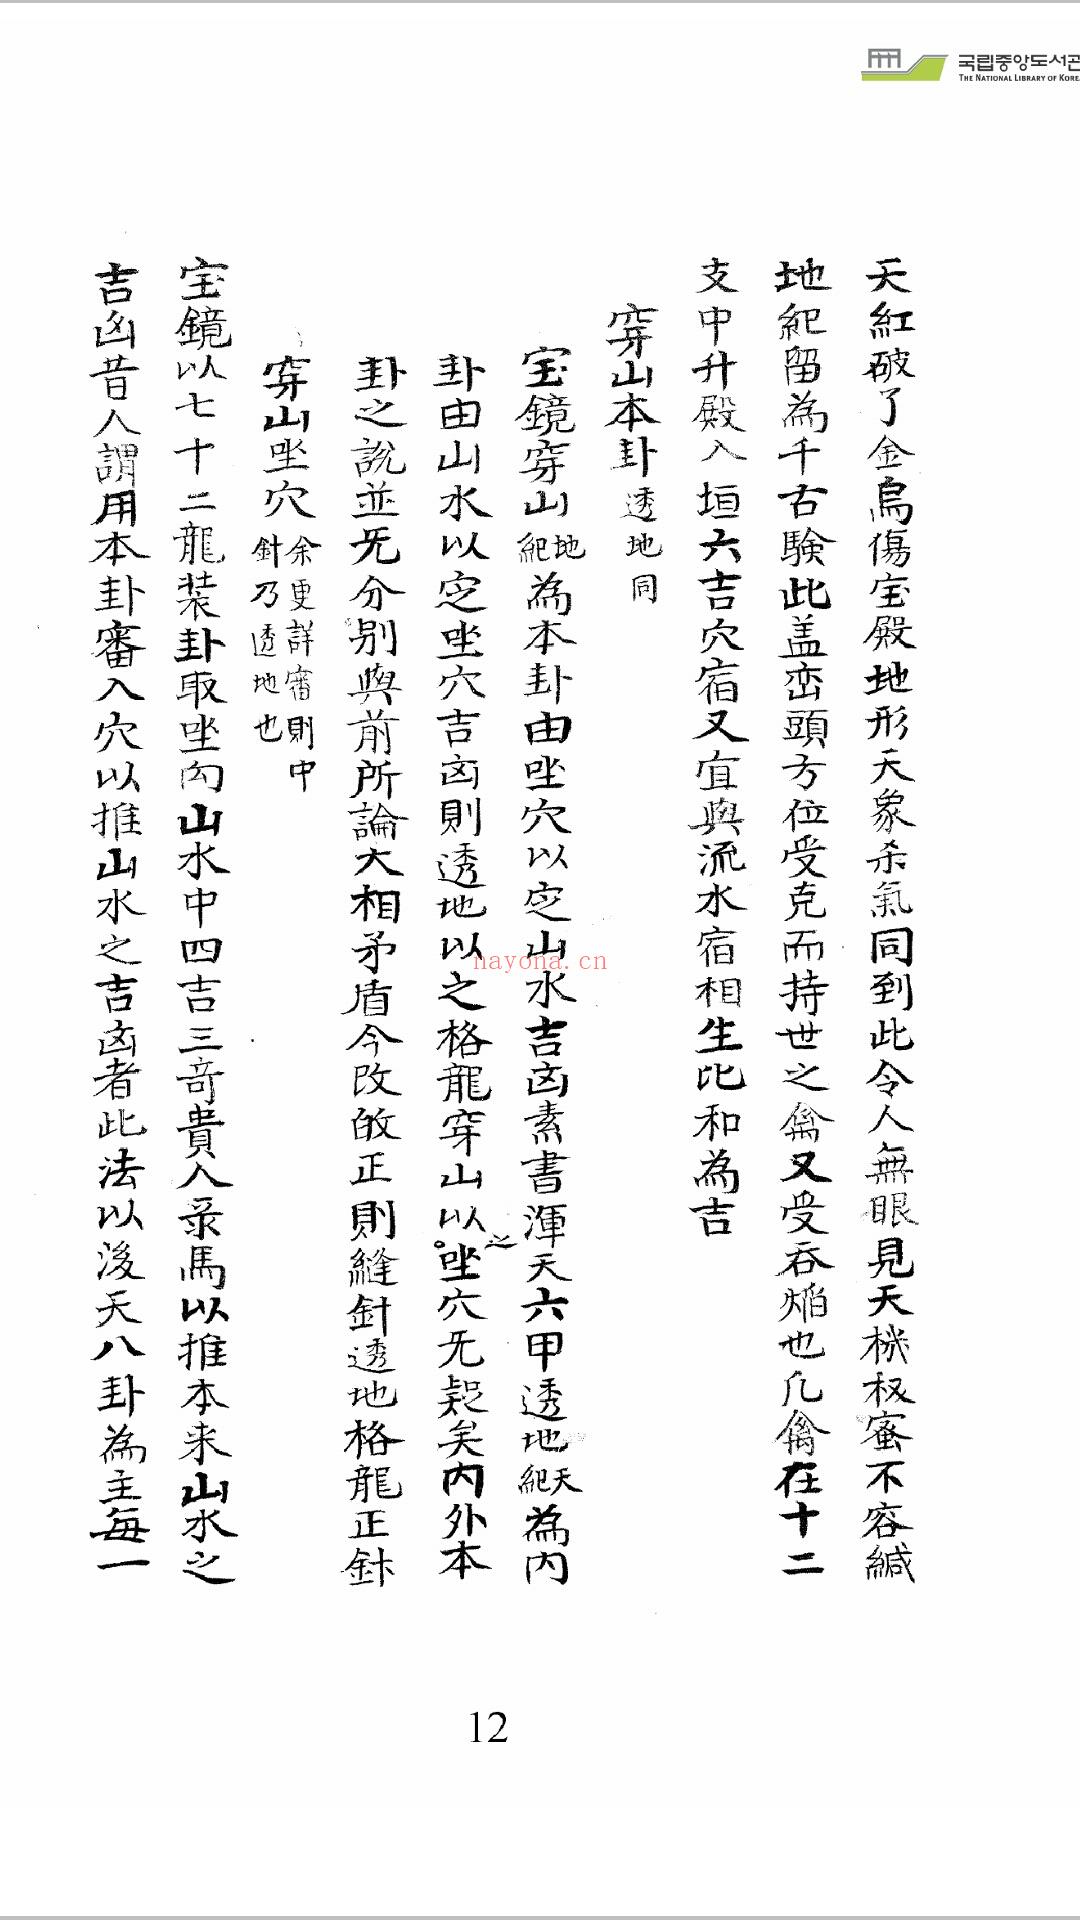 국립중앙도서관
THE NATIONAL LIBRARY OF KOREA
天紅破了金烏傷宝殿地形天象杀氣同到此令人無眼見天機权蜜不容緘
地紀留為千古験此盖峦頭方位受克而持世之禽又受吞焰也凢禽在十二
支中升殿入垣六吉穴宿又宜與流水宿相生比和為吉
穿山本卦透地同
宝鏡穿山地紀為本卦由坐穴以定山水吉凶素書渾天六甲透地天紀為内
卦由山水以定坐穴吉凶則透地以之格龍穿山以之坐穴无疑矣内外本
卦之說並无分别與前所論大相矛盾今改皈正則縫針透地格龍正針
穿山坐穴余更詳審則中針乃透地也
宝鏡以七十二龍装卦取坐向山水中四吉三竒貴人彔馬以推本来山水之
吉凶昔人謂用本卦審入穴以推山水之吉凶者此法以後天八卦為主每一
nayona.cn
12